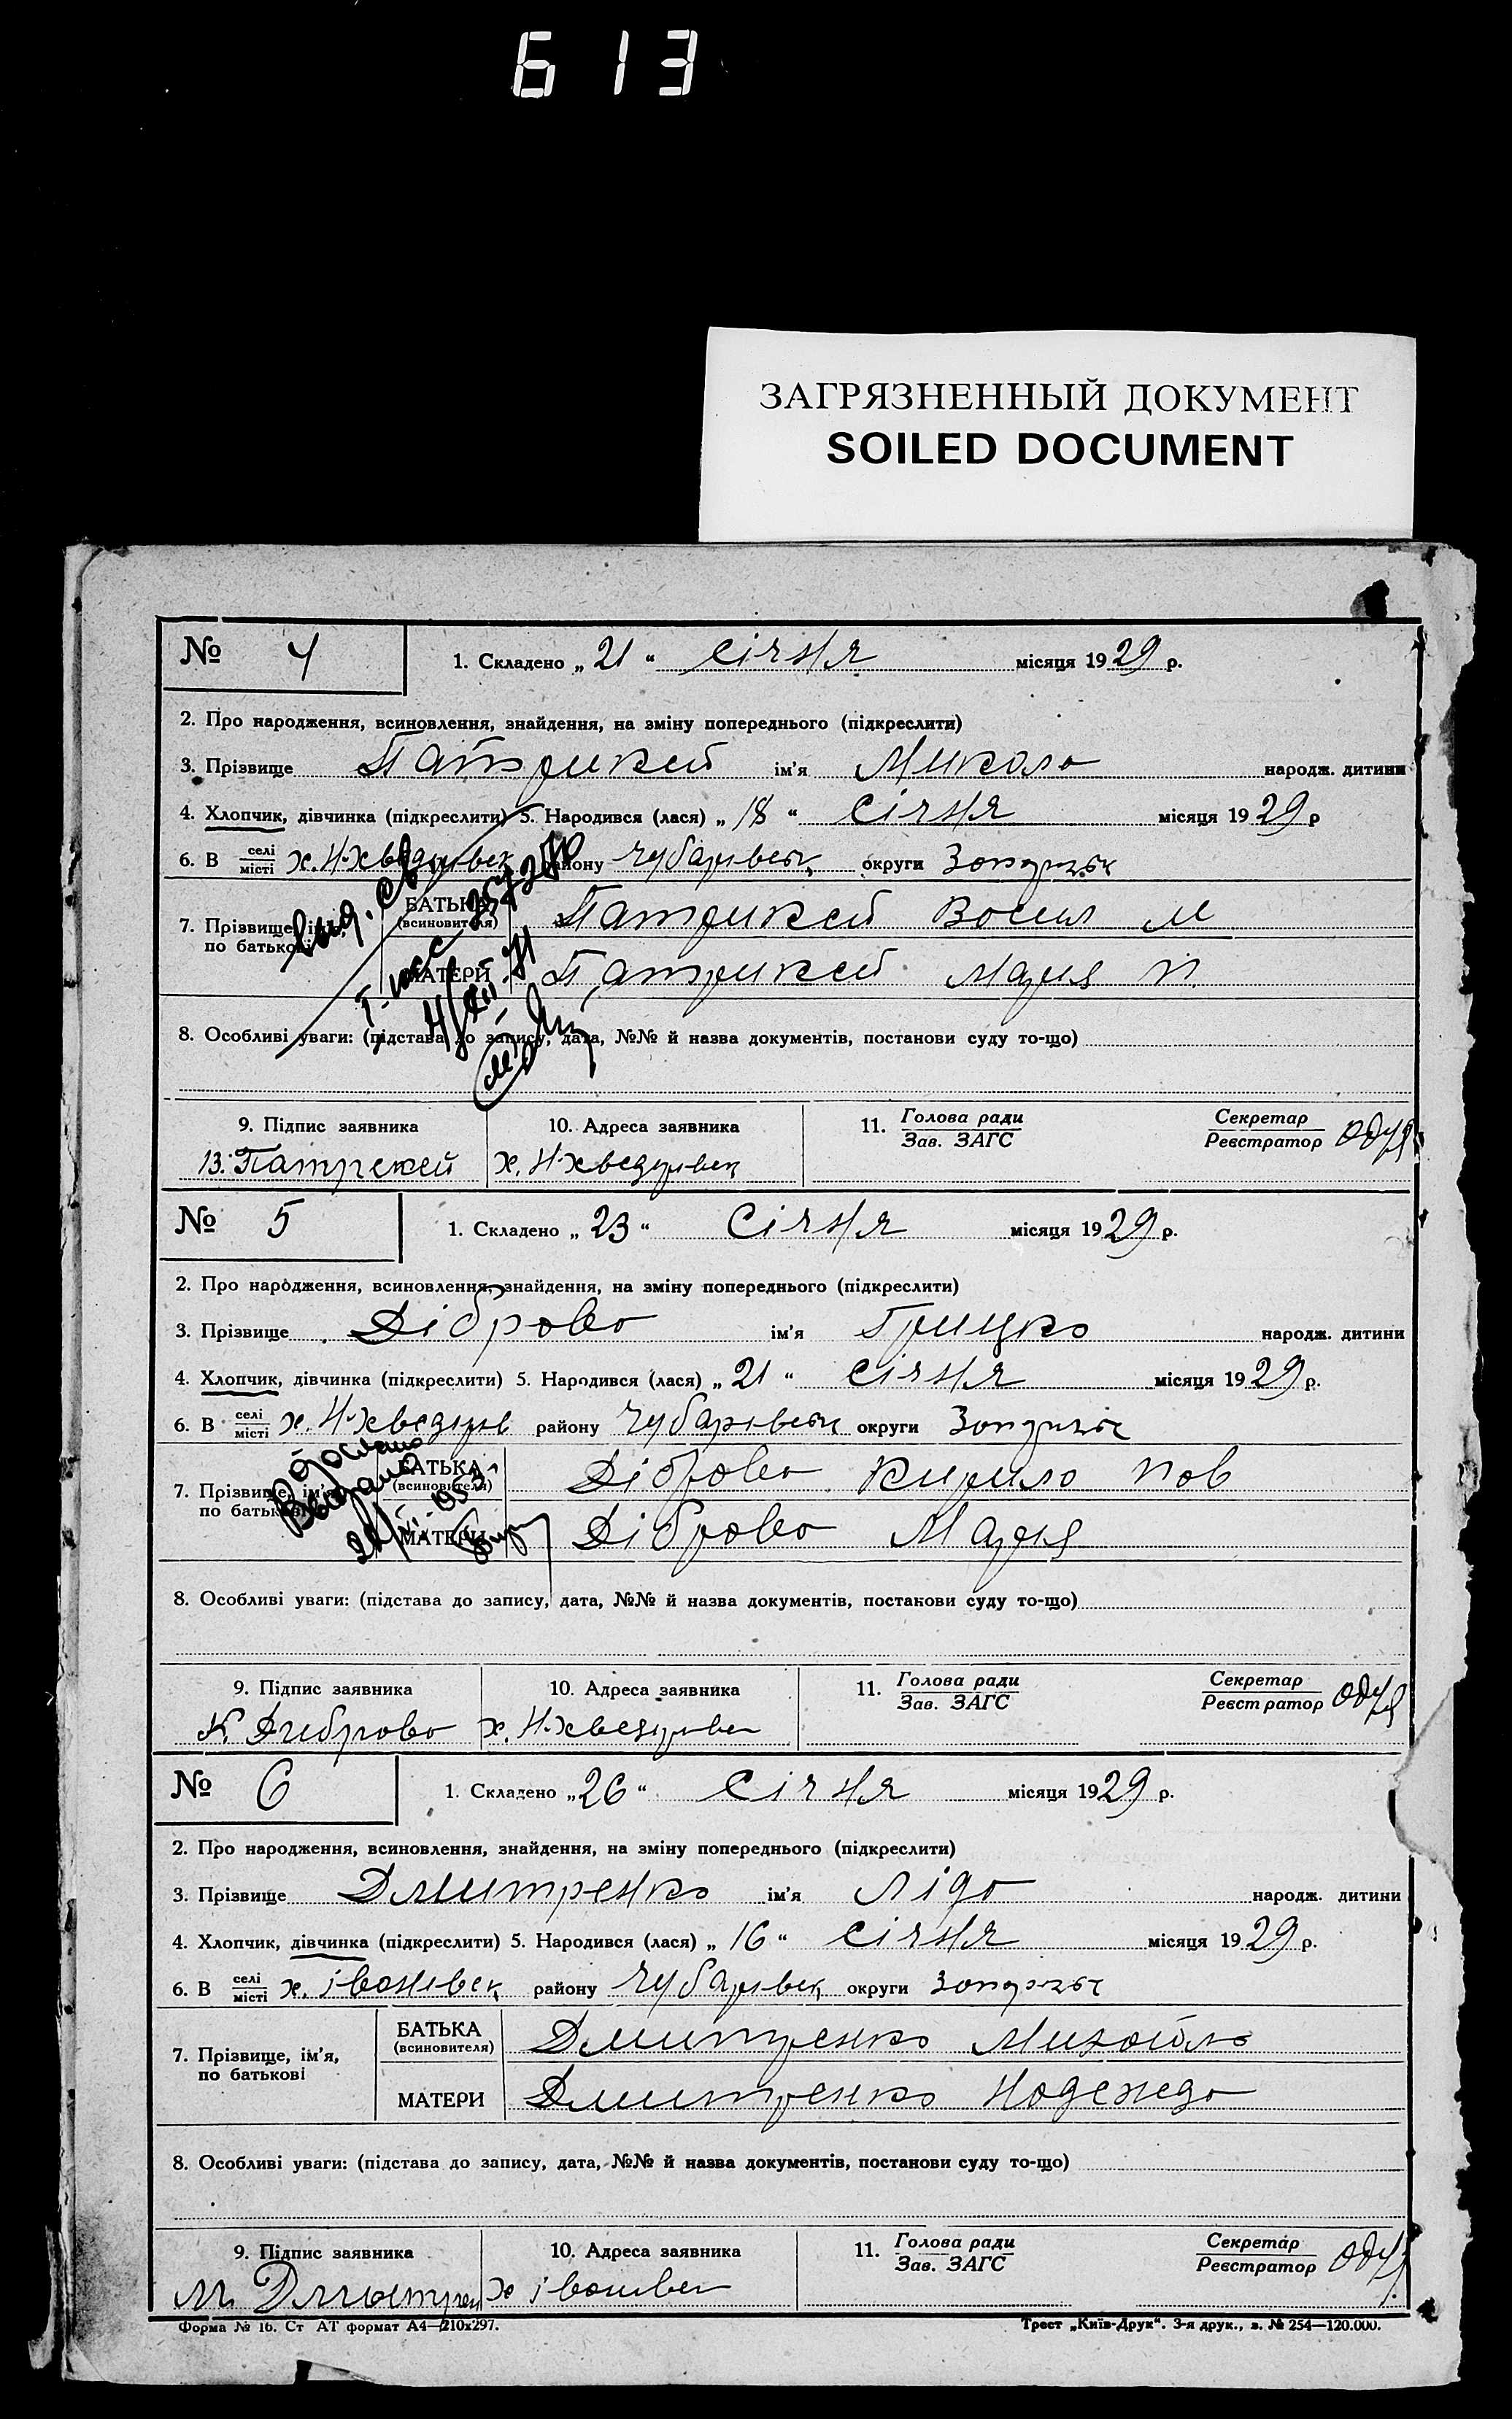 613
ЗАГРЯЗНЕННЫЙ ДОКУМЕНТ
SOILED DOCUMENT
№ 4 1. Складено „ 21 “ січня місяця 1929 р.
2. Про народження, всиновлення, знайдення, на зміну попереднього (підкреслити)
3. Прізвище Патрикей ім'я Микола народж. дитини
4. Хлопчик, дівчинка (підкреслити) 5. Народився (лася) „ 18 “ січня місяця 1929 р
6. В селі місті х. Н-хведорівск району Чубарівськ округи Запоризьк
7. Прізвище, ім'я, по батькові БАТЬКА (всиновителя) Патрикей Восил М
МАТЕРИ Патрикей Мария П
8. Особливі уваги: (підстава до запису, дата, №№ й назва документів, постанови суду то-що)
9. Підпис заявника 10. Адреса заявника 11. Голова ради Зав. ЗАГС Секретар Реєстратор
В. Патрекей х. Н-хведорівец
№ 5 1. Складено „ 23 “ Січня місяця 1929 р.
2. Про народження, всиновлення, знайдення, на зміну попереднього (підкреслити)
3. Прізвище Діброва ім'я Грицко народж. дитини
4. Хлопчик, дівчинка (підкреслити) 5. Народився (лася) „ 21 “ січня місяця 1929 р.
6. В селі місті х. Н-хведорів району Чубарівськ округи Запоризьк
7. Прізвище, ім'я, по батькові БАТЬКА (всиновителя) Діброва Кирило Пов
МАТЕРИ Діброва Мария
8. Особливі уваги: (підстава до запису, дата, №№ й назва документів, постанови суду то-що)
9. Підпис заявника 10. Адреса заявника 11. Голова ради Зав. ЗАГС Секретар Реєстратор
К. Диброво х. Н-хведорівец
№ 6 1. Складено „ 26 “ січня місяця 1929 р.
2. Про народження, всиновлення, знайдення, на зміну попереднього (підкреслити)
3. Прізвище Дмитренко ім'я Ліда народж. дитини
4. Хлопчик, дівчинка (підкреслити) 5. Народився (лася) „ 16 “ січня місяця 1929 р.
6. В селі місті х. івонівск району Чубарівск округи Запоризьк
7. Прізвище, ім'я, по батькові БАТЬКА (всиновителя) Дмитренко Михойло
МАТЕРИ Дмитренко Нодежда
8. Особливі уваги: (підстава до запису, дата, №№ й назва документів, постанови суду то-що)
9. Підпис заявника 10. Адреса заявника 11. Голова ради Зав. ЗАГС Секретар Реєстратор
М. Дмытрен х івонівец
Форма № 16. Ст АТ формат А4—210x297. Трест „Київ-Друк“. 3-я друк., з. № 254—120.000.